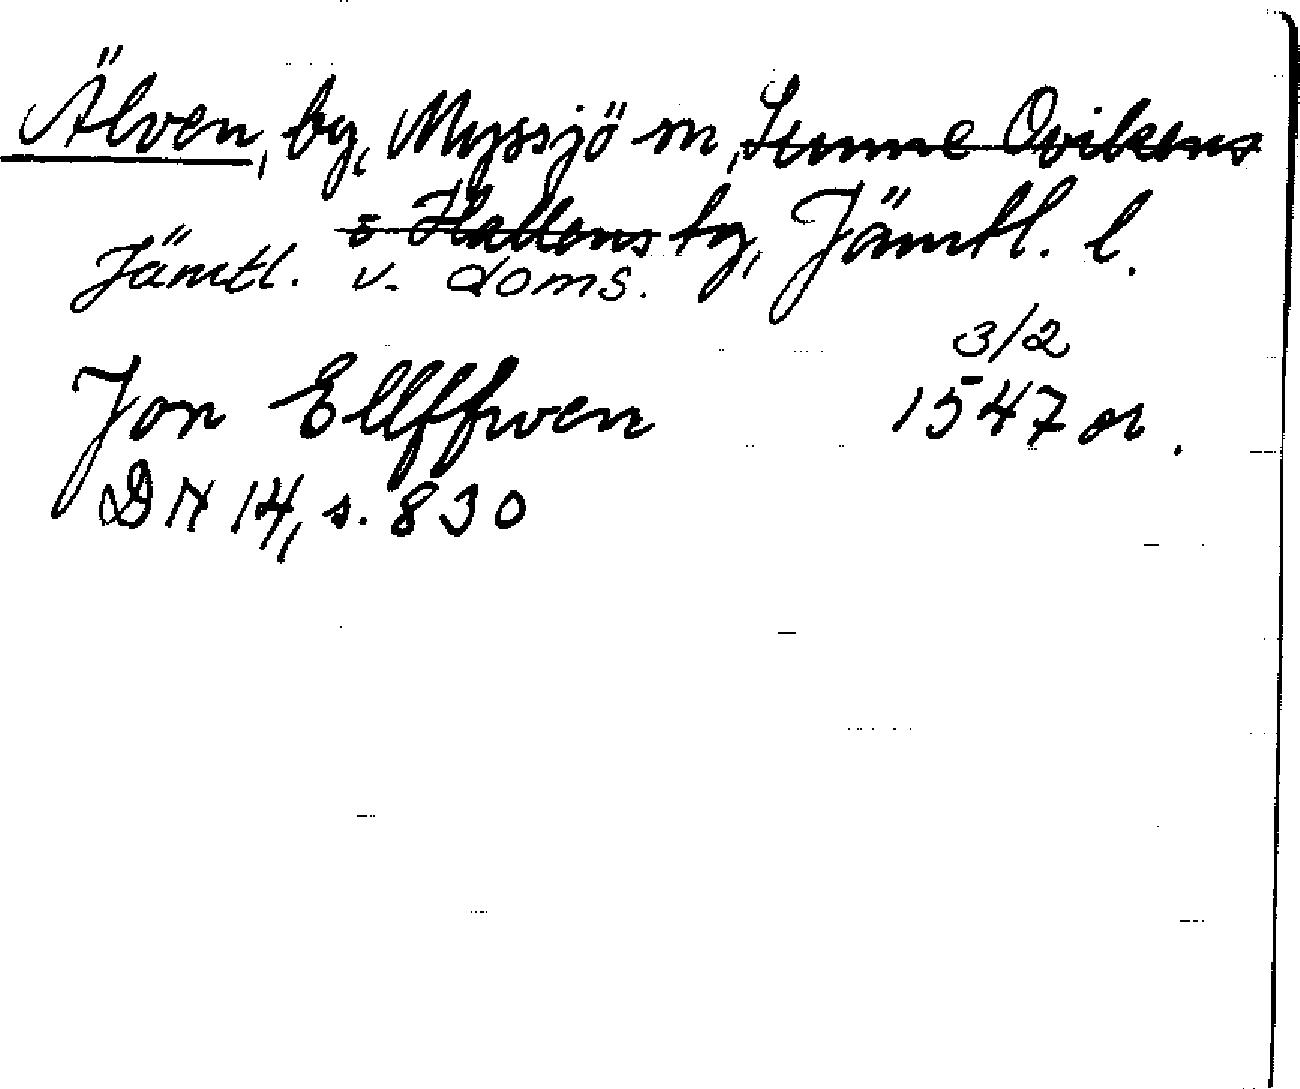 Älven, by, Myssjö sn, Sunne Ovikens
o Hallens tg, Jämtl. l.
Jämtl. v. doms.
3/2
Jon Ellffwen 1547 or.
DN 14, s. 830